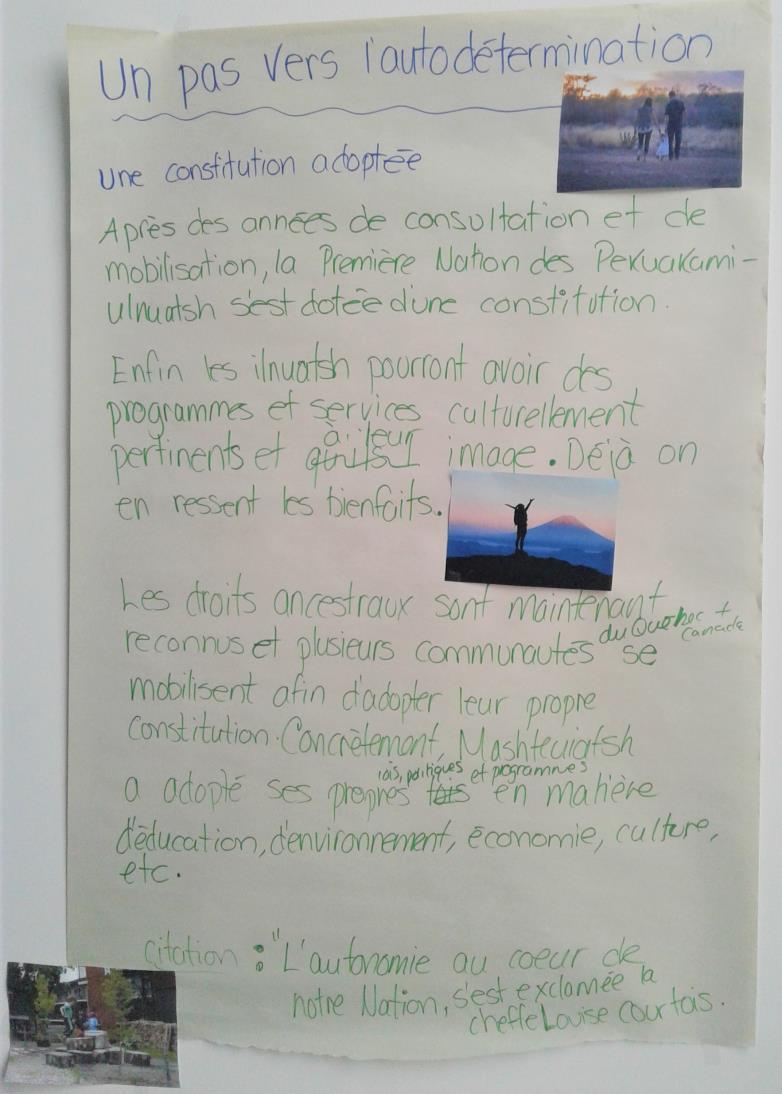 Un pas vers l'autodétermination
Une constitution adoptée
Après des années de consultation et de
mobilisation, la Première Nation des Pekuakami-
ulnuatsh s'est dotée d'une constitution.
Enfin les ilnuatsh pourront avoir des
programmes et services culturellement
à leur
pertinents et image. Déjà on
en ressent les bienfaits.
Les droits ancestraux sont maintenant
du Québec +
Canada
reconnus et plusieurs communautés se
mobilisent afin d'adopter leur propre
constitution. Concrètement, Mashteuiatsh
lois, politiques et programmes
a adopté ses propres lois en matière
d'éducation, d'environnement, économie, culture,
etc.
Citation : "L'autonomie au coeur de
notre Nation, s'est exclamée la
cheffe Louise Courtois.